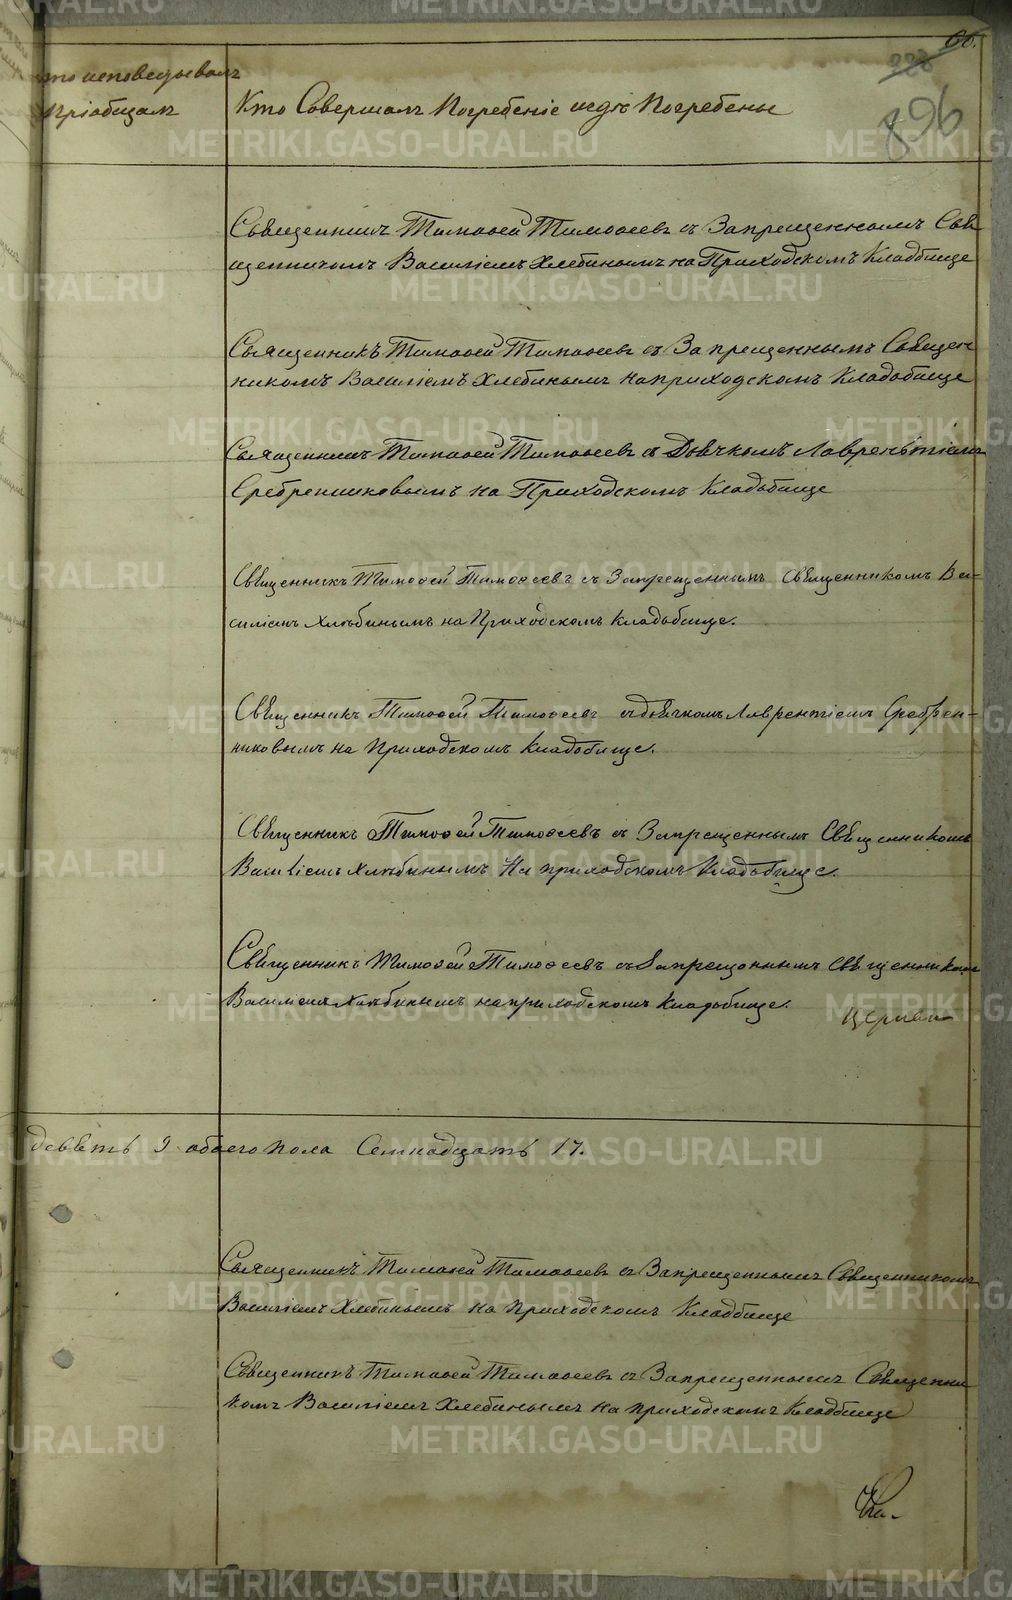 66.
896
кто исповедывалъ
Пріобщалъ
Кто Совершалъ Погребеніе игдѣ Погребены
Священникъ Тимофей Тимофеевъ съ Запрещеннымъ Свя
щенникомъ Василіемъ Хлебинымъ на Приходскомъ Кладбище
Священникъ Тимофей Тимофеевъ съ Запрещеннымъ Священ
никомъ Василіемъ Хлебинымъ на приходскомъ Кладбище
Священникъ Тимофей Тимофеевъ съ Дьячкомъ Лаврентіемъ
Сребрениковымъ на Приходскомъ Кладьбище
Священникъ Тимоѳей Тимоѳеевъ съ Запрещеннымъ Священникомъ Ва-
силіемъ Хлѣбинымъ на Приходскомъ кладьбище.
Священникъ Тимоѳей Тимоѳеевъ съ дьячкомъ Лаврентіемъ Сребрен-
никовымъ на Приходскомъ кладьбище.
Священникъ Тимоѳей Тимоѳеевъ съ Запрещеннымъ Священникомъ
Василіемъ Хлѣбинымъ На приходскомъ Кладьбище.
Священникъ Тимоѳей Тимоѳеевъ съ Запрещоннымъ Священникомъ
Василіемъ Хлѣбинымъ на приходскомъ кладьбище.
Церкви
девѣть 9 обоего пола Семнадцать 17.
Священникъ Тимофей Тимофеевъ съ Запрещеннымъ Священникомъ
Василіемъ Хлебинымъ на приходскомъ Кладбище
Священникъ Тимофей Тимофеевъ съ Запрещеннымъ Священни
комъ Василіемъ Хлебинымъ на приходскомъ Кладбище
METRIKI.GASO-URAL.RU